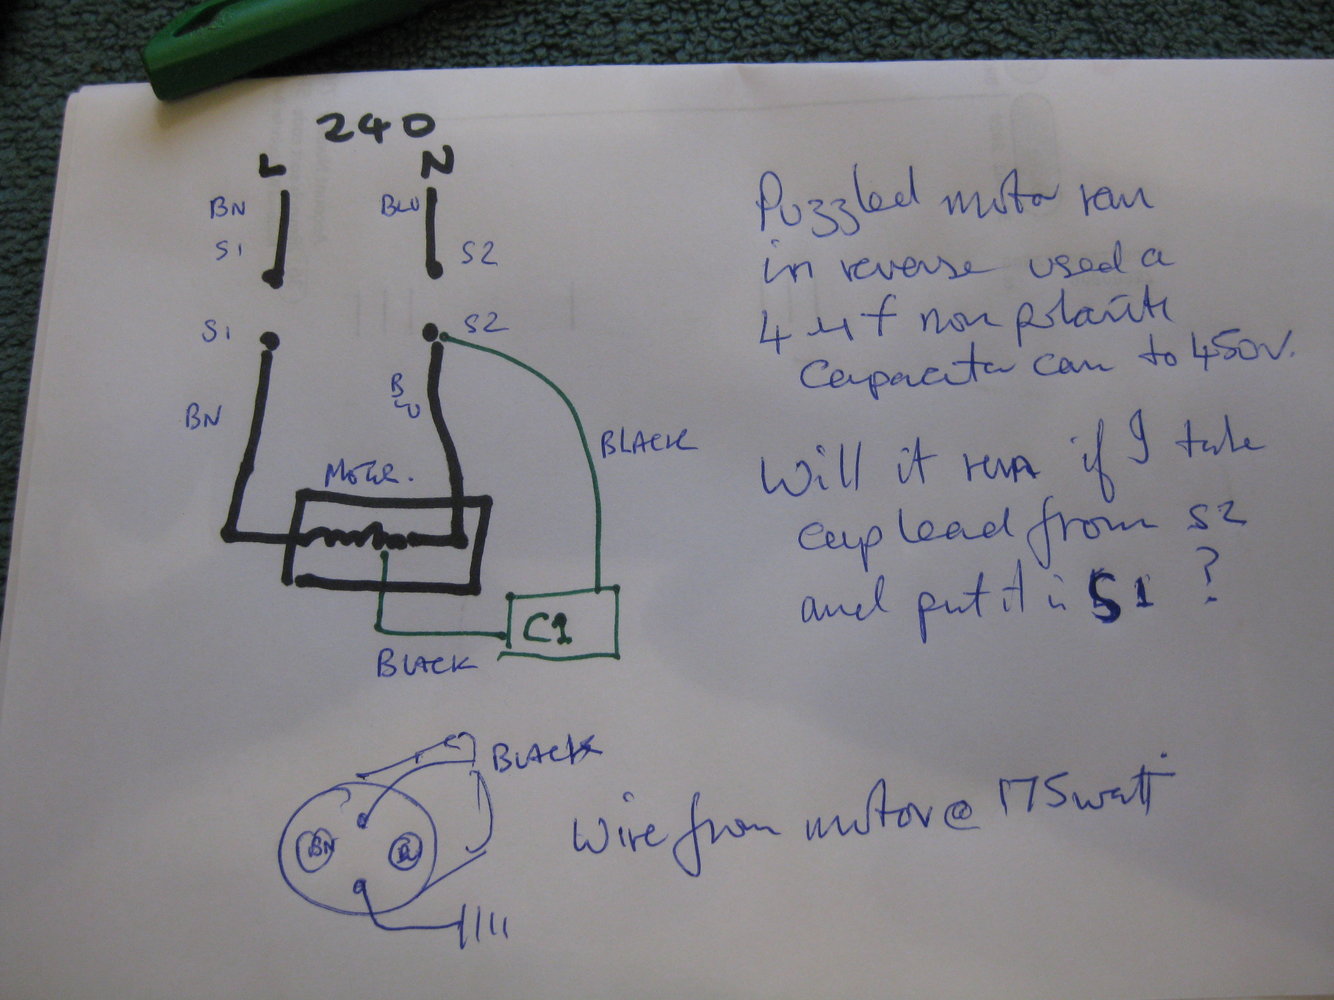 240
L N
BN BLU
S1 S2
S1 S2
BN BLU
BLACK
Motor.
C1
BLACK
Puzzled motor ran
in reverse used a
4 uf non polarite
Capacitor can to 450V.
Will it run if I take
cap lead from S2
and put it in S1 ?
BLACK
BN
Wire from motor @ 175 watt